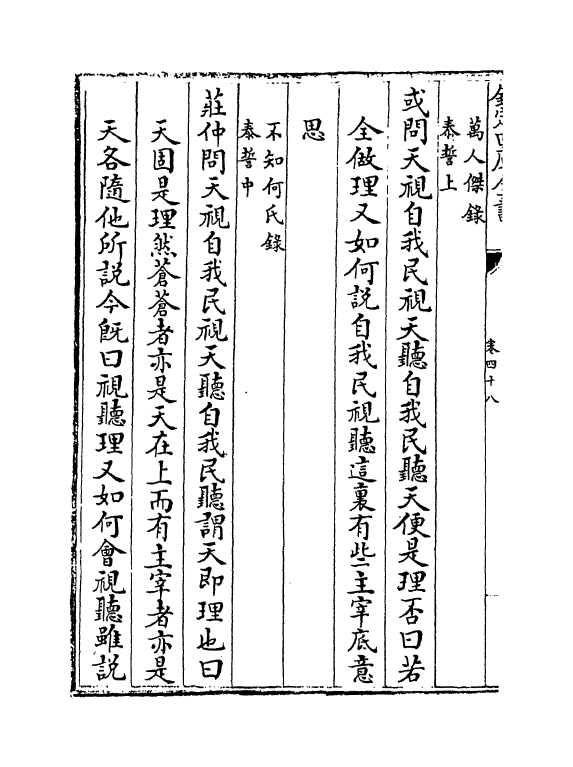 欽定四庫全書
卷四十八
萬人傑錄
泰誓上
或問天視自我民視天聽自我民聽天便是理否曰若
全做理又如何說自我民視聽這裏有些主宰底意
思
不知何氏錄
泰誓中
莊仲問天視自我民視天聽自我民聽謂天即理也曰
天固是理然蒼蒼者亦是天在上而有主宰者亦是
天各隨他所説今既曰視聽理又如何會視聽雖説